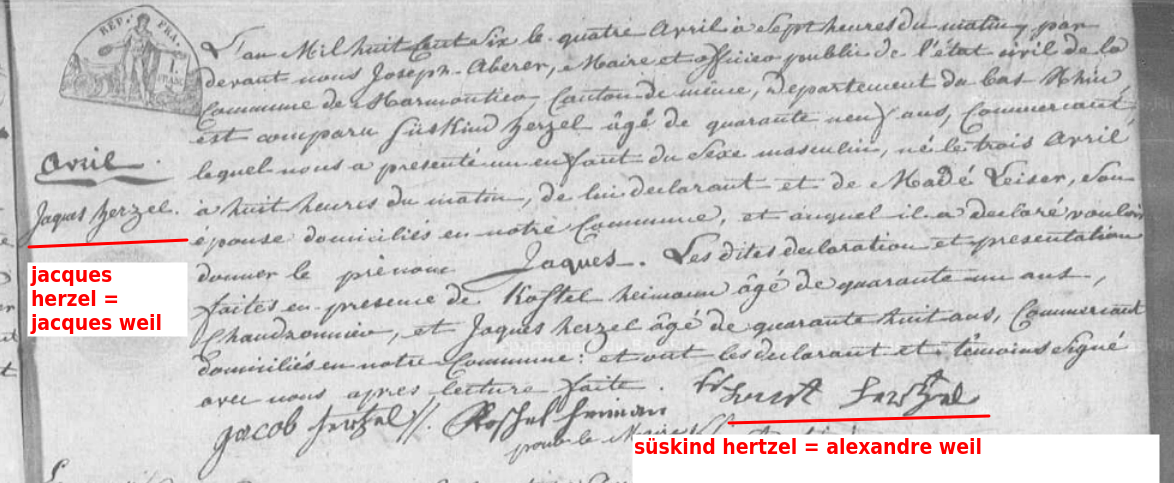 RÉP. FRA.
1
FRANC
L'an Mil huit Cent Six le quatre Avril à Sept heures du matin, par
devant nous Joseph Aberer, Maire et officier public de l'état civil de la
Commune de Marmoutier, Canton de même, Departement du bas Rhin
est comparu Süskind herzel âgé de quarante neuf ans, Commercant
lequel nous a presenté un enfant du Sexe masculin, né le trois Avril
à huit heures du matin, de lui declarant et de Madé Leiser, Son
épouse domiciliés en notre Commune, et auquel il a declaré vouloir
donner le prénom Jaques. Les dites declaration et presentation
faites en presence de Koftel heimann âgé de quarante un ans,
Chaudronnier, et Jaques herzel âgé de quarante huit ans, Commercant
domiciliés en notre Commune: et ont les declarant et témoins Signé
avec nous apres lecture faite.
Avril.
Jaques herzel.
jacques
herzel =
jacques weil
jacob hertzel
pour le Maire
süskind hertzel = alexandre weil